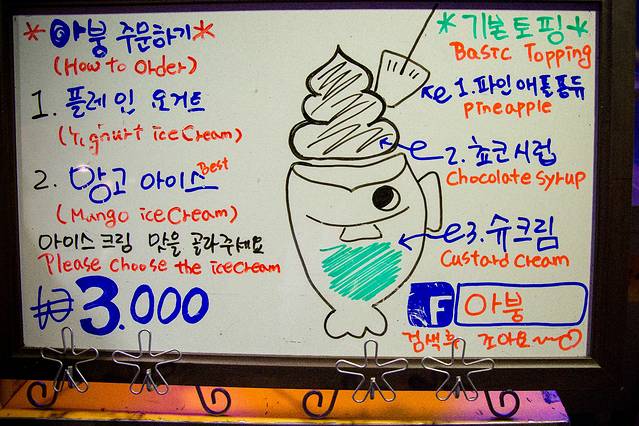 *아붕 주문하기*
(How to Order)
1. 플레인 요거트
(Yoghurt iceCream)
2. 망고 아이스 Best
(Mango iceCream)
아이스크림 맛을 골라주세요
Please choose the icecream
₩3.000
*기본토핑*
Basic Topping
1.파인애플퐁듀
pineapple
2. 쵸코시럽
Chocolate Syrup
3.슈크림
Custard Cream
f 아붕
검색후 조아요~